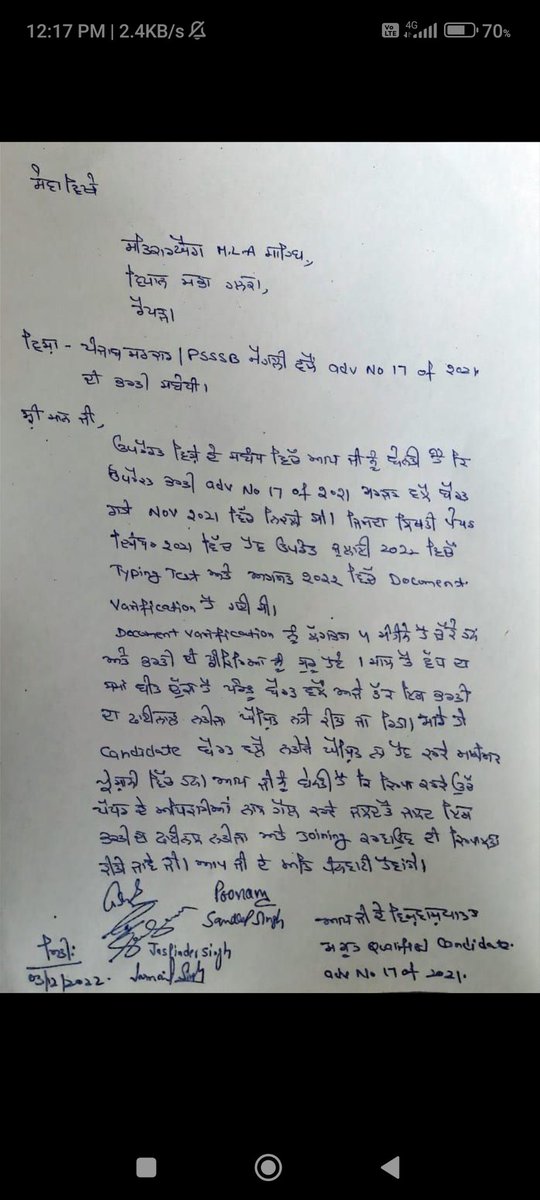 12:17 PM | 2.4KB/s
Vo LTE 4G 70%
ਸੇਵਾ ਵਿਖੇ
ਸਤਿਕਾਰਯੋਗ M.L.A ਸਾਹਿਬ,
ਵਿਧਾਨ ਸਭਾ ਹਲਕਾ,
ਰੋਪੜ।
ਵਿਸ਼ਾ - ਪੰਜਾਬ ਸਰਕਾਰ / PSSSB ਮੋਹਾਲੀ ਵੱਲੋਂ adv No 17 of 2021
ਦੀ ਭਰਤੀ ਸਬੰਧੀ।
ਸ਼੍ਰੀ ਮਾਨ ਜੀ,
ਉਪਰੋਕਤ ਵਿਸ਼ੇ ਦੇ ਸਬੰਧ ਵਿੱਚ ਆਪ ਜੀ ਨੂੰ ਬੇਨਤੀ ਹੈ ਕਿ
ਉਪਰੋਕਤ ਭਰਤੀ adv No 17 of 2021 ਵੱਲੋਂ ਬੋਰਡ
Nov 2021 ਵਿੱਚ ਨਿਕਲੀ ਸੀ। ਜਿਸਦਾ ਲਿਖਤੀ ਪੇਪਰ
2021 ਵਿੱਚ ਹੋਣ ਉਪਰੰਤ ਜੁਲਾਈ 2022 ਵਿੱਚ
Typing Test ਅਤੇ ਅਗਸਤ 2022 ਵਿੱਚ Document
Varification ਹੋ ਗਈ ਸੀ।
Document varification ਨੂੰ ਲੱਗਭਗ 4 ਮਹੀਨੇ ਹੋ ਚੁੱਕੇ ਹਨ
ਅਤੇ ਭਰਤੀ ਦੀ ਨੂੰ ਸ਼ੁਰੂ ਹੋਏ 1 ਸਾਲ ਤੋਂ ਵੱਧ ਦਾ
ਸਮਾਂ ਬੀਤ ਚੁੱਕਾ ਹੈ ਪਰੰਤੂ ਬੋਰਡ ਵੱਲੋਂ ਅਜੇ ਤੱਕ ਇਸ ਭਰਤੀ
ਦਾ ਫਾਈਨਲ ਨਤੀਜਾ ਘੋਸ਼ਿਤ ਨਹੀਂ ਕੀਤਾ ਜਾ ਰਿਹਾ। ਸਾਰੇ ਹੀ
Candidate ਬੋਰਡ ਵੱਲੋਂ ਨਤੀਜੇ ਘੋਸ਼ਿਤ ਨਾ ਹੋਣ ਕਰਕੇ ਮਾਨਸਿਕ
ਪ੍ਰੇਸ਼ਾਨੀ ਵਿੱਚ ਹਨ। ਆਪ ਜੀ ਨੂੰ ਬੇਨਤੀ ਹੈ ਕਿ ਕਿਰਪਾ ਕਰਕੇ ਉਕਤ
ਬੋਰਡ ਦੇ ਅਧਿਕਾਰੀਆਂ ਨਾਲ ਗੱਲ ਕਰਕੇ ਜਲਦ ਤੋਂ ਜਲਦ ਇਸ
ਭਰਤੀ ਦਾ ਫਾਈਨਲ ਨਤੀਜਾ ਅਤੇ Joining ਕਰਵਾਉਣ ਦੀ ਕਿਰਪਾਲਤਾ
ਕੀਤੀ ਜਾਵੇ ਜੀ। ਆਪ ਜੀ ਦੇ ਅਤਿ ਧੰਨਵਾਦੀ ਹੋਵਾਂਗੇ।
Poonam
Sandeep Singh
Jaspinder Singh
ਮਿਤੀ:
03/12/2022.
ਆਪ ਜੀ ਦੇ ਵਿਸ਼ਵਾਸਪਾਤਰ
ਸਮੂਹ Qualified Candidate.
adv No 17 of 2021.